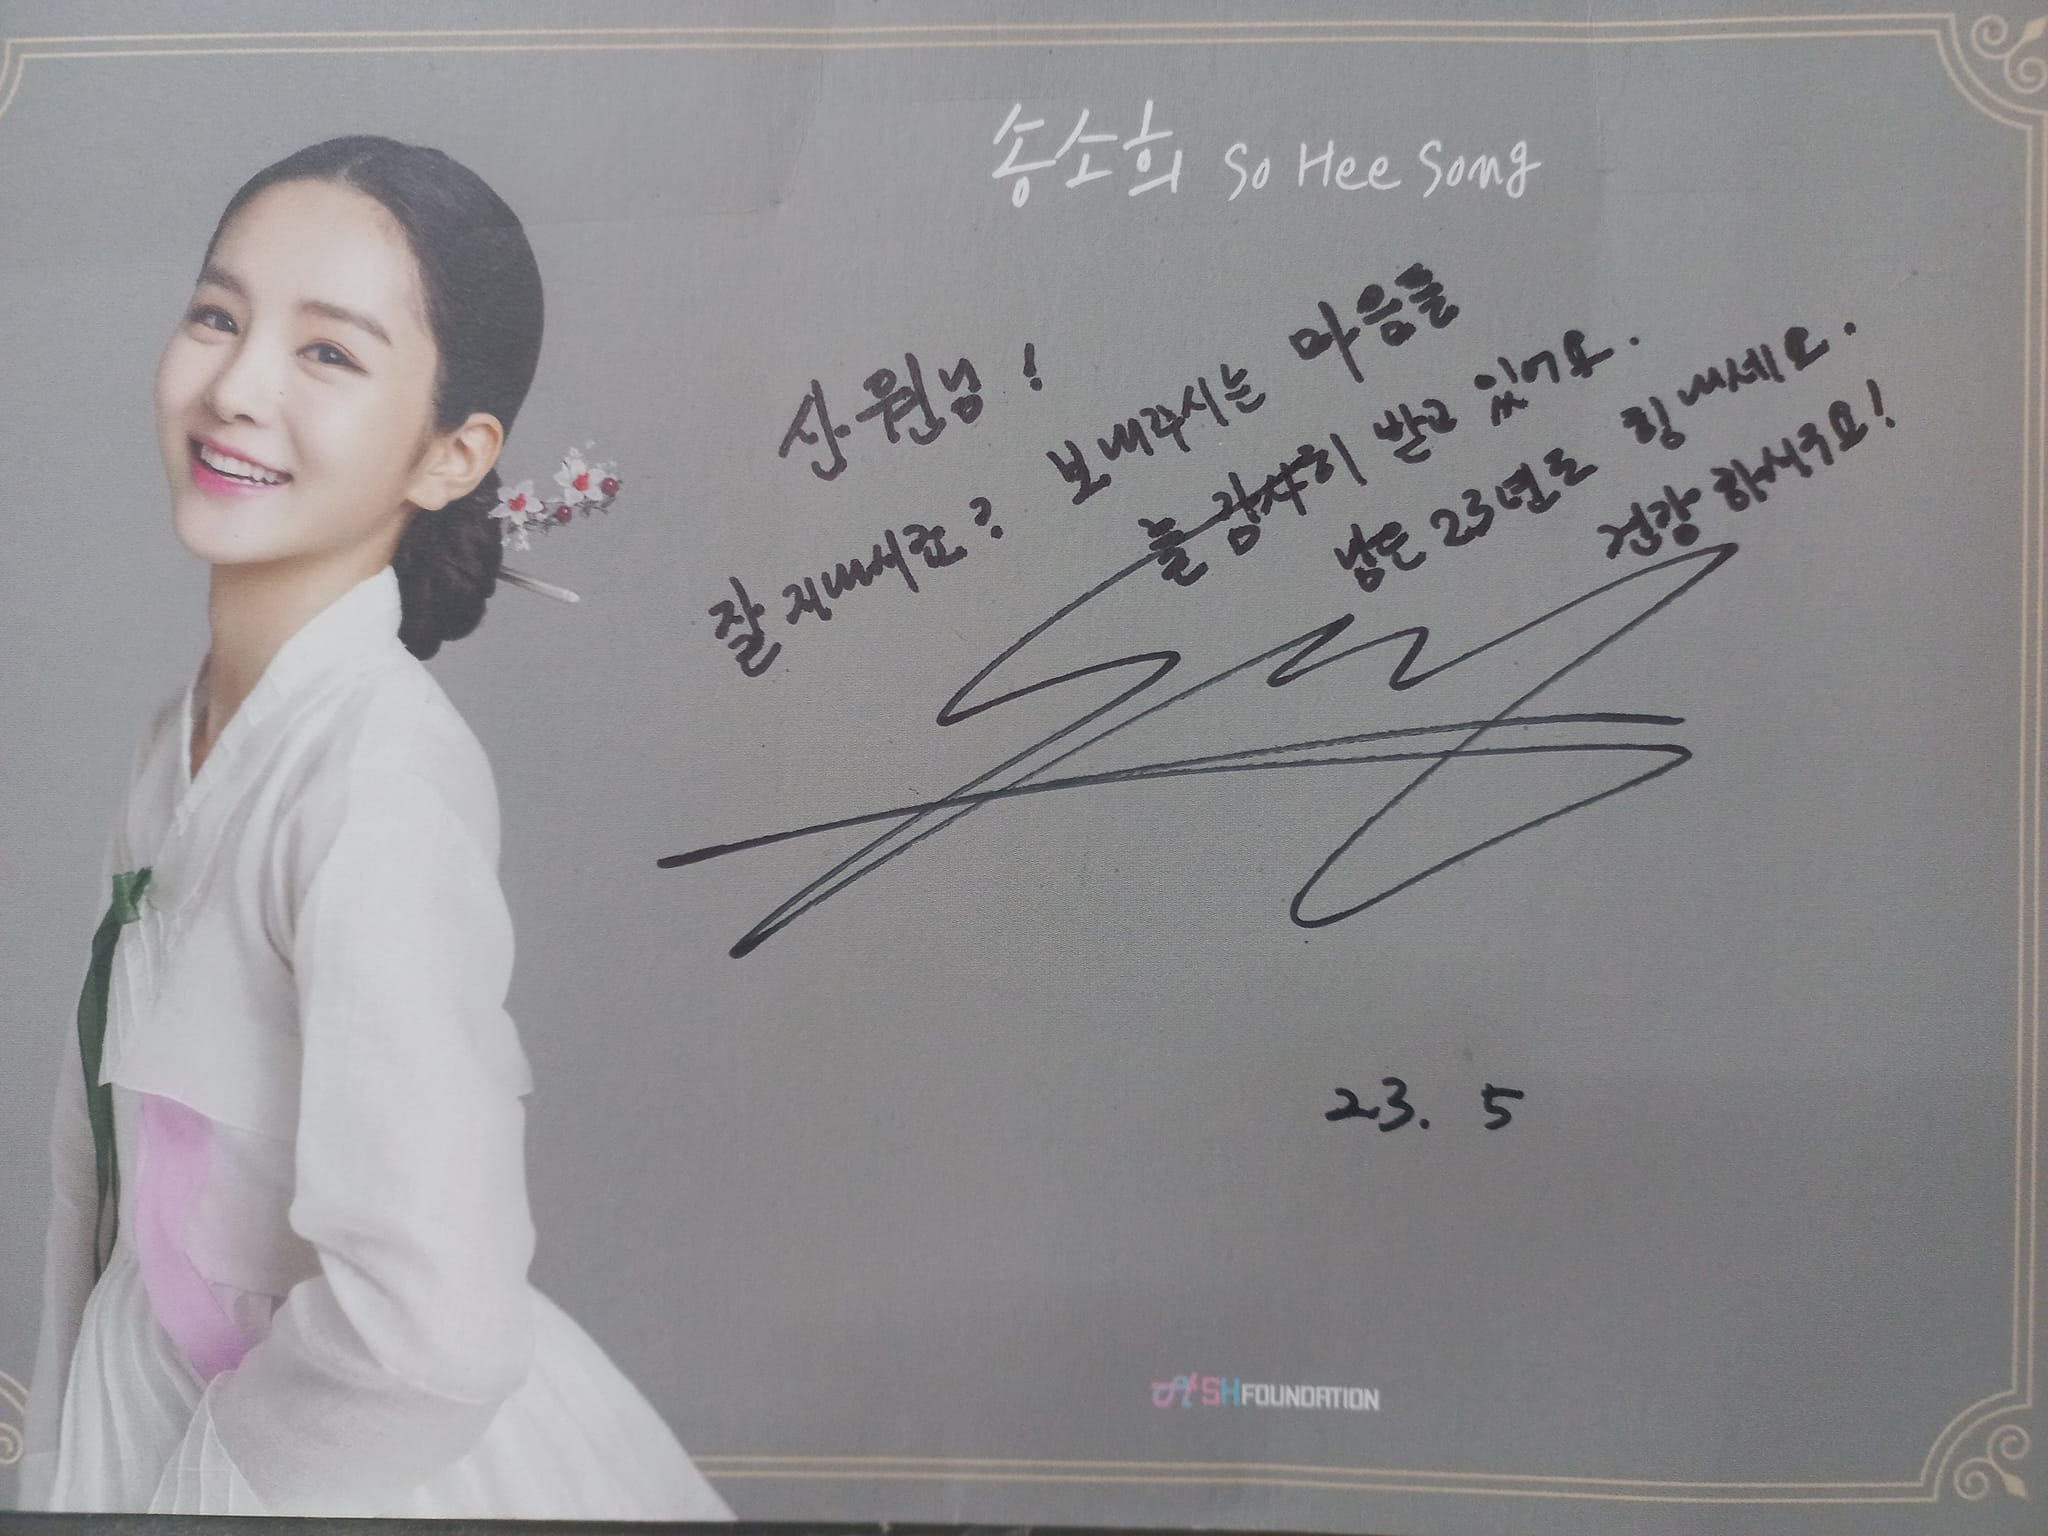 송소희 So Hee Song
산원님!
잘 지내시죠? 보내주시는 마음들
늘 감사히 받고 있어요.
남은 23년도 힘내세요.
건강하셔주요!
23. 5
SHFOUNDATION